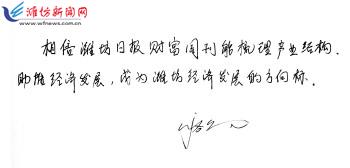 潍坊新闻网
www.wfnews.com.cn
相信潍坊日报财富周刊能梳理产业结构.
助推经济发展,成为潍坊经济发展的方向标.